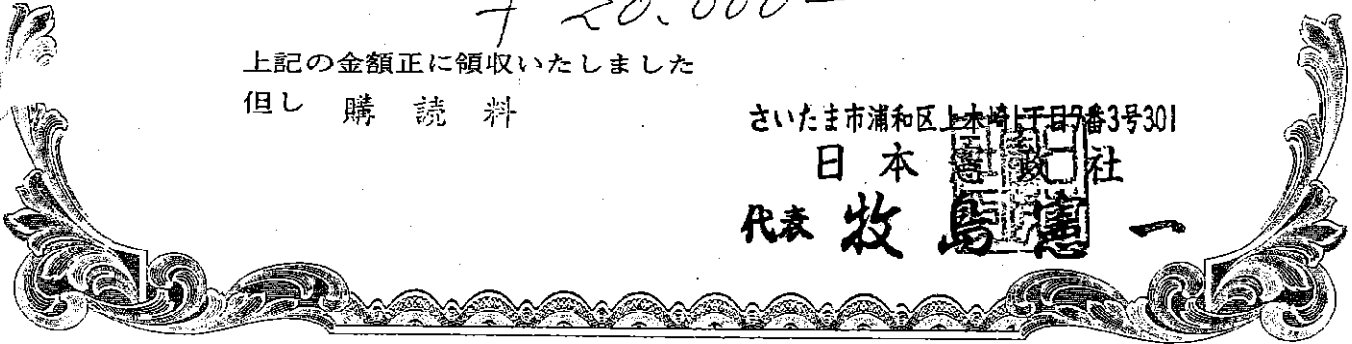 ¥20,000-
上記の金額正に領収いたしました
但し 購読料
さいたま市浦和区上木崎1丁目7番3号301
日本憲政社
代表 牧島憲一